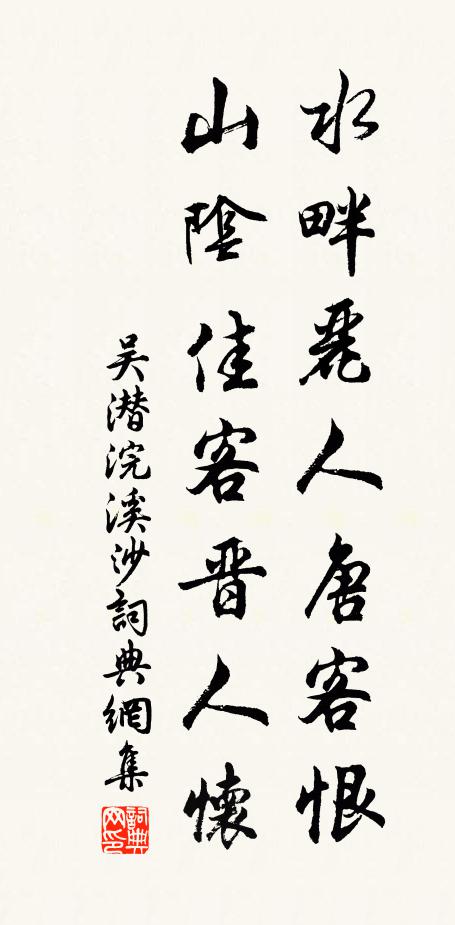 水畔麗人唐客恨
山陰佳客晋人懷
吴潜浣溪沙詞典網集
詞典网印